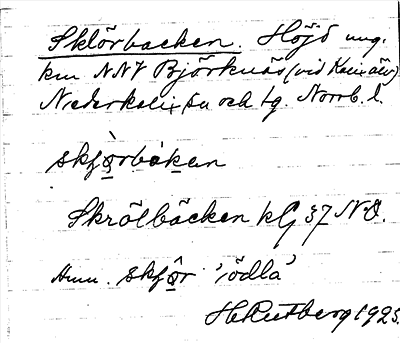 Sklörbacken. Höjd ung.
km NNV Björknäs (vid Kalix älv)
Nederkalix sn och tg. Norrb. l.
skʃǫ̀rbakan
Skrölbäcken kG 37 N.O.
Anm. skʃǫ̂r 'ödla'
H Rutberg 1925.